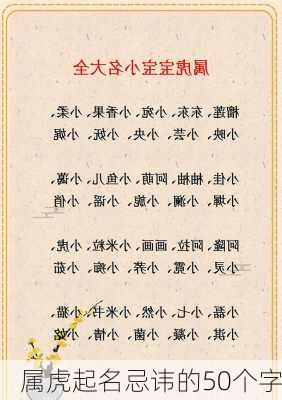 属虎宝宝小名大全
榴莲、东东、小宛、小香果、小柔、
小映、小芸、小央、小妩、小娓
小佳、柚柚、阿萌、小鱼儿、小蔼、
小墀、小澜、小脆、小谣、小俏
阿隆、阿拉、画画、小米粒、小虎、
小灵、小霓、小荞、小痴、小茹
小磊、小七、小然、小米书、小猫、
小淇、小凝、小菌、小倩、
属虎起名忌讳的50个字